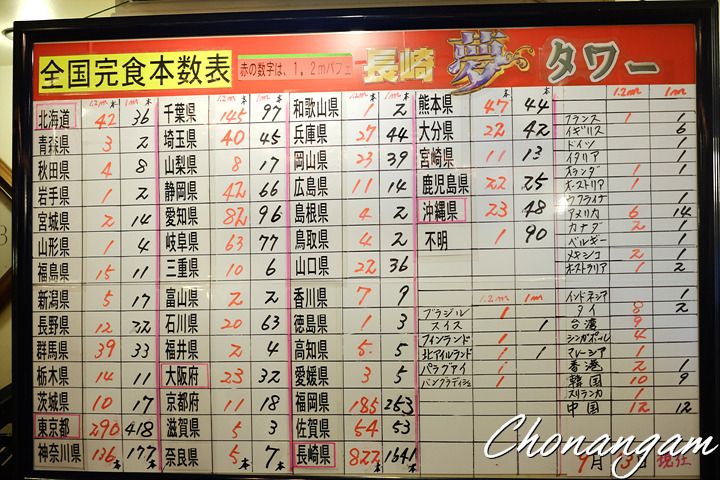 全国完食本数表 赤の数字は、1.2mパフェ 長崎 夢 タワー
1.2m本 1m本
北海道 42 36
青森県 3 2
秋田県 4 8
岩手県 1 2
宮城県 2 14
山形県 1 4
福島県 15 11
新潟県 5 17
長野県 12 22
群馬県 39 33
栃木県 14 11
茨城県 10 17
東京都 290 418
神奈川県 136本 177本
1.2m本 1m本
千葉県 145 97
埼玉県 40 45
山梨県 8 17
静岡県 42 66
愛知県 82 96
岐阜県 63 77
三重県 10 6
富山県 2 2
石川県 20 63
福井県 2 4
大阪府 23 32
京都府 11 18
滋賀県 5 3
奈良県 5本 7本
1.2m本 1m本
和歌山県 1 2
兵庫県 27 44
岡山県 23 39
広島県 11 14
島根県 4 2
鳥取県 4 2
山口県 22 36
香川県 7 9
徳島県 1 3
高知県 5 5
愛媛県 3 5
福岡県 185 253
佐賀県 54 53
長崎県 822本 1641本
1.2m本 1m本
熊本県 47 44
大分県 22 42
宮崎県 11 13
鹿児島県 22 25
沖縄県 23 48
不明 1 90
1.2m 1m
ブラジル 1
スイス 1
フィンランド 1
北アイルランド 1 1
パラグアイ 1
バングラディシュ 1
1.2m 1m
フランス 1 1
イギリス 6
ドイツ 1
イタリア 1
オランダ 1 1
オーストリア 1
ウクライナ 1
アメリカ 6 14
カナダ 2 1
ベルギー 1
メキシコ 2 1
オーストラリア 1 2
インドネシア 1
タイ 8 2
台湾 9
シンガポール 4
マレーシア 1
香港 2 1
韓国 10 9
スリランカ 1
中国 12 12
9月 3日 現在
Chonangam